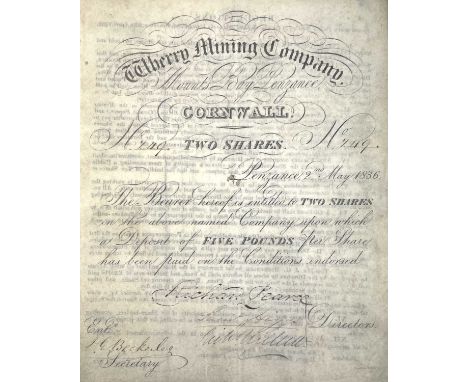 Wherry Mining Company.
Mounts Bay, Penzance
CORNWALL
No 249. TWO SHARES. No 249.
Penzance, 2nd May 1836
The Bearer hereof is entitled to TWO SHARES
in the above named Company upon which
a Deposit of FIVE POUNDS per Share
has been paid on the Conditions endorsed
Richard Pearce
Directors
Entd.
Secretary